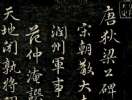 唐狄梁公碑
宋朝散大夫
潤州軍事
范仲淹譔
天地閉孰將